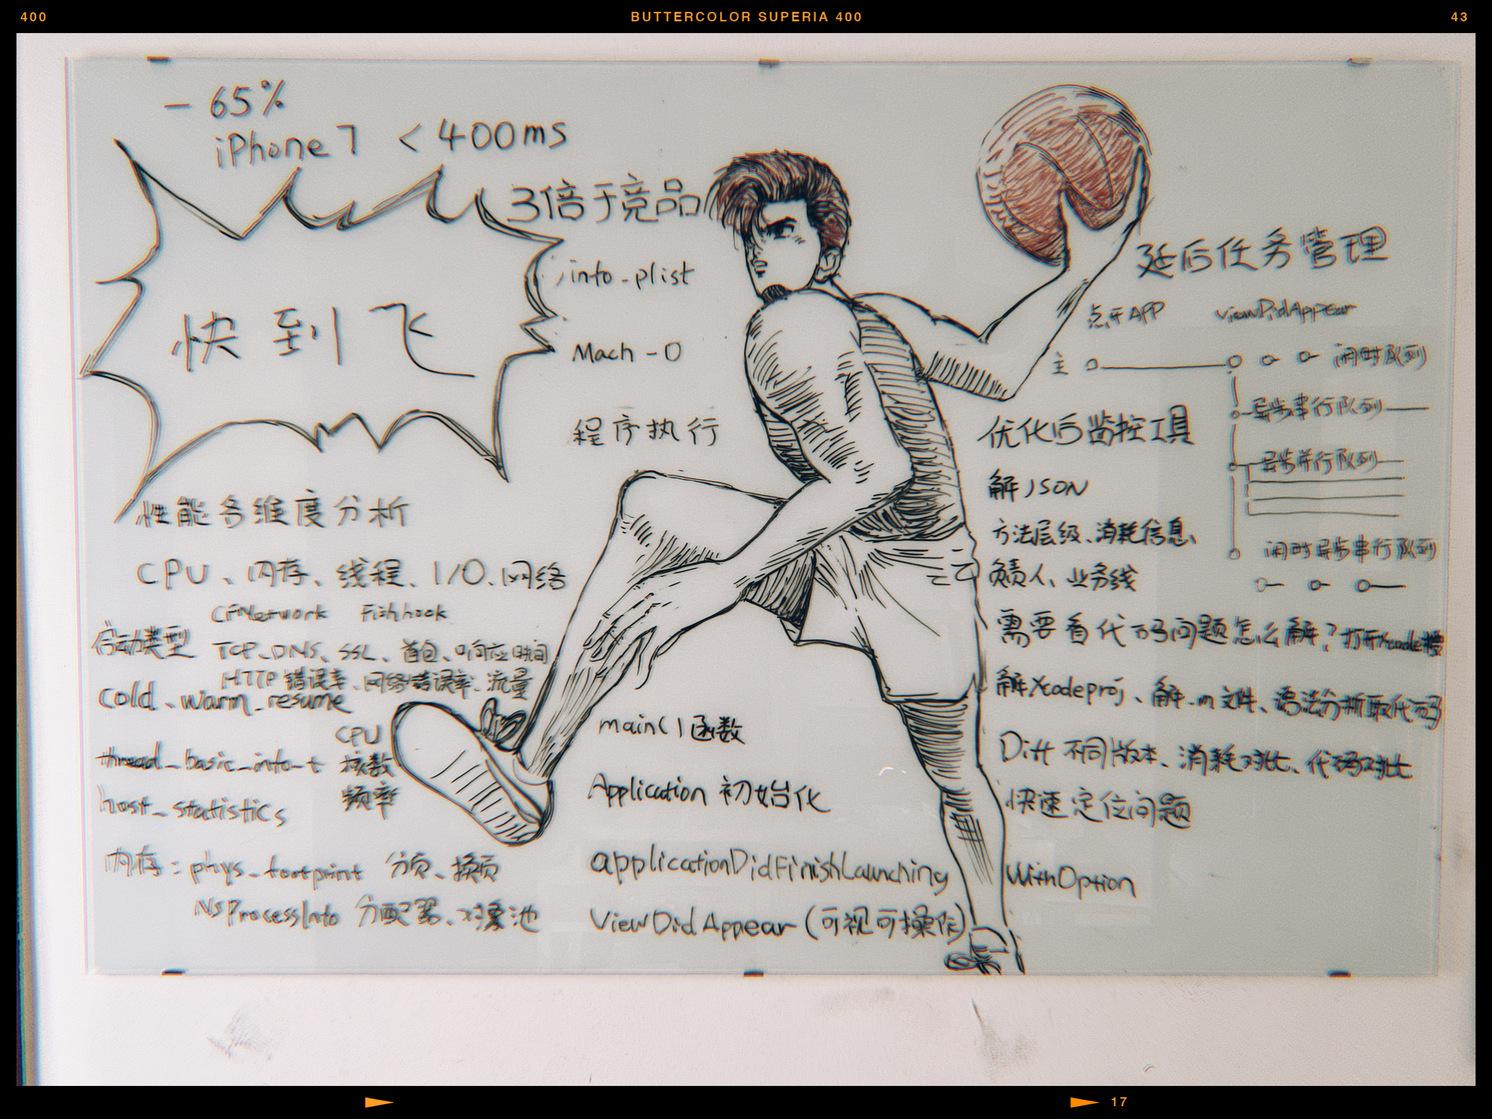 400
BUTTERCOLOR SUPERIA 400
43
- 65%
iPhone7 < 400ms
3倍于竞品
快到飞
info.plist
Mach-O
程序执行
性能多维度分析
CPU、内存、线程、I/O、网络
CFNetwork Fishhook
启动类型
TCP、DNS、SSL、首包、响应时间
HTTP错误率、网络错误率、流量
cold、warm、resume
CPU
thread_basic_info_t 核数
host_statistics 频率
内存：phys_footprint 分页、换页
NSProcessInfo 分配器、对象池
main()函数
Application 初始化
applicationDidFinishLaunching WithOption
ViewDidAppear (可视可操作)
延后任务管理
点开APP viewDidAppear
主 闲时队列
异步串行队列
异步并行队列
闲时异步串行队列
优化后监控工具
解JSON
方法层级、消耗信息、
负责人、业务线
需要看代码问题怎么解？打开Xcode搜
解Xcodeproj、解.m文件、语法分析取代码
Diff 不同版本、消耗对比、代码对比
快速定位问题
17